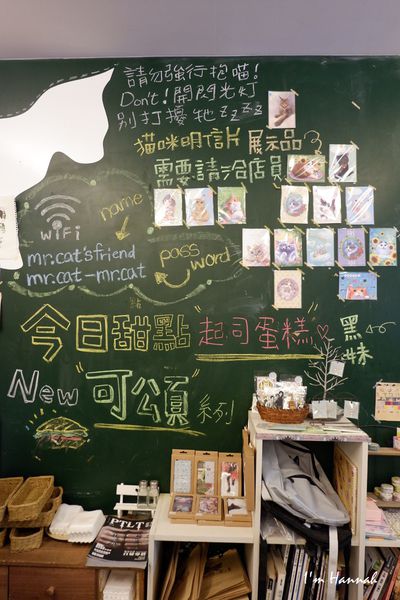 請勿強行抱喵!
Don't! 開閃光灯
別打擾牠 zzzz
貓咪明信片 展示品
需要請洽店員
WiFi
name
mr.cat'sfriend
mr.cat-mr.cat
pass
word
今日甜點
"起司蛋糕"
黑
妹
New "可頌" 系列
I'm Hannah